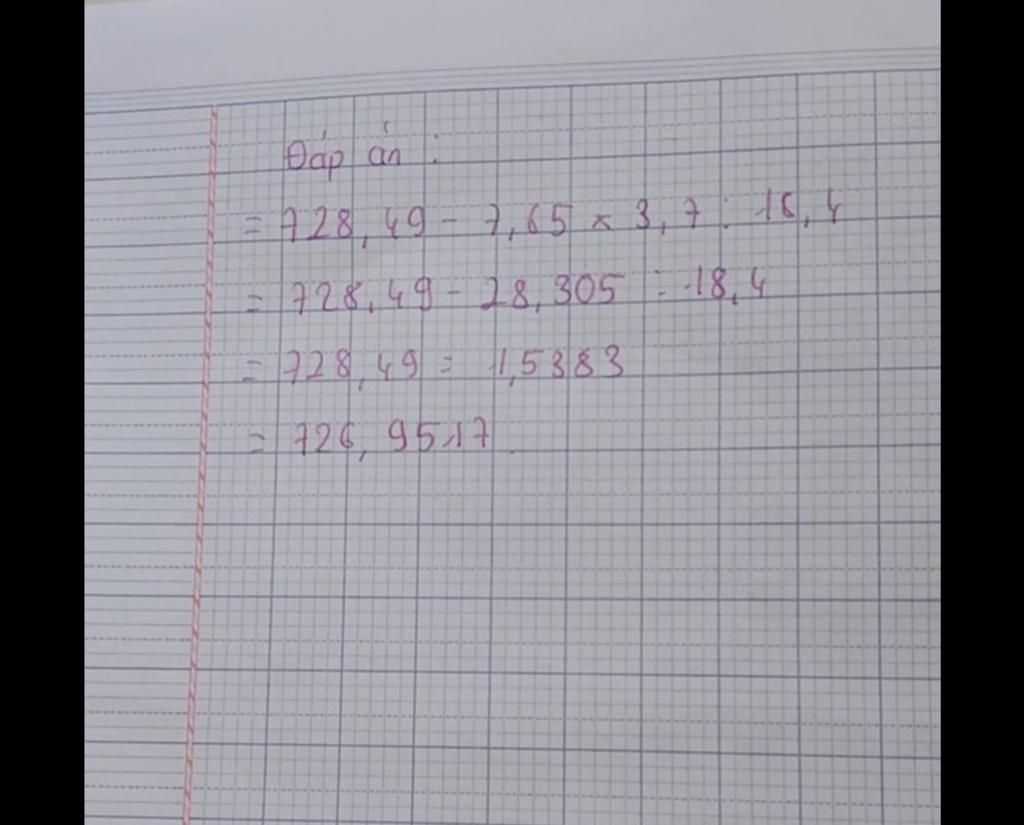 Đáp án :
= 728,49 - 7,65 x 3,7 : 18,4
= 728,49 - 28,305 : 18,4
= 728,49 = 1,5383
= 726,9517